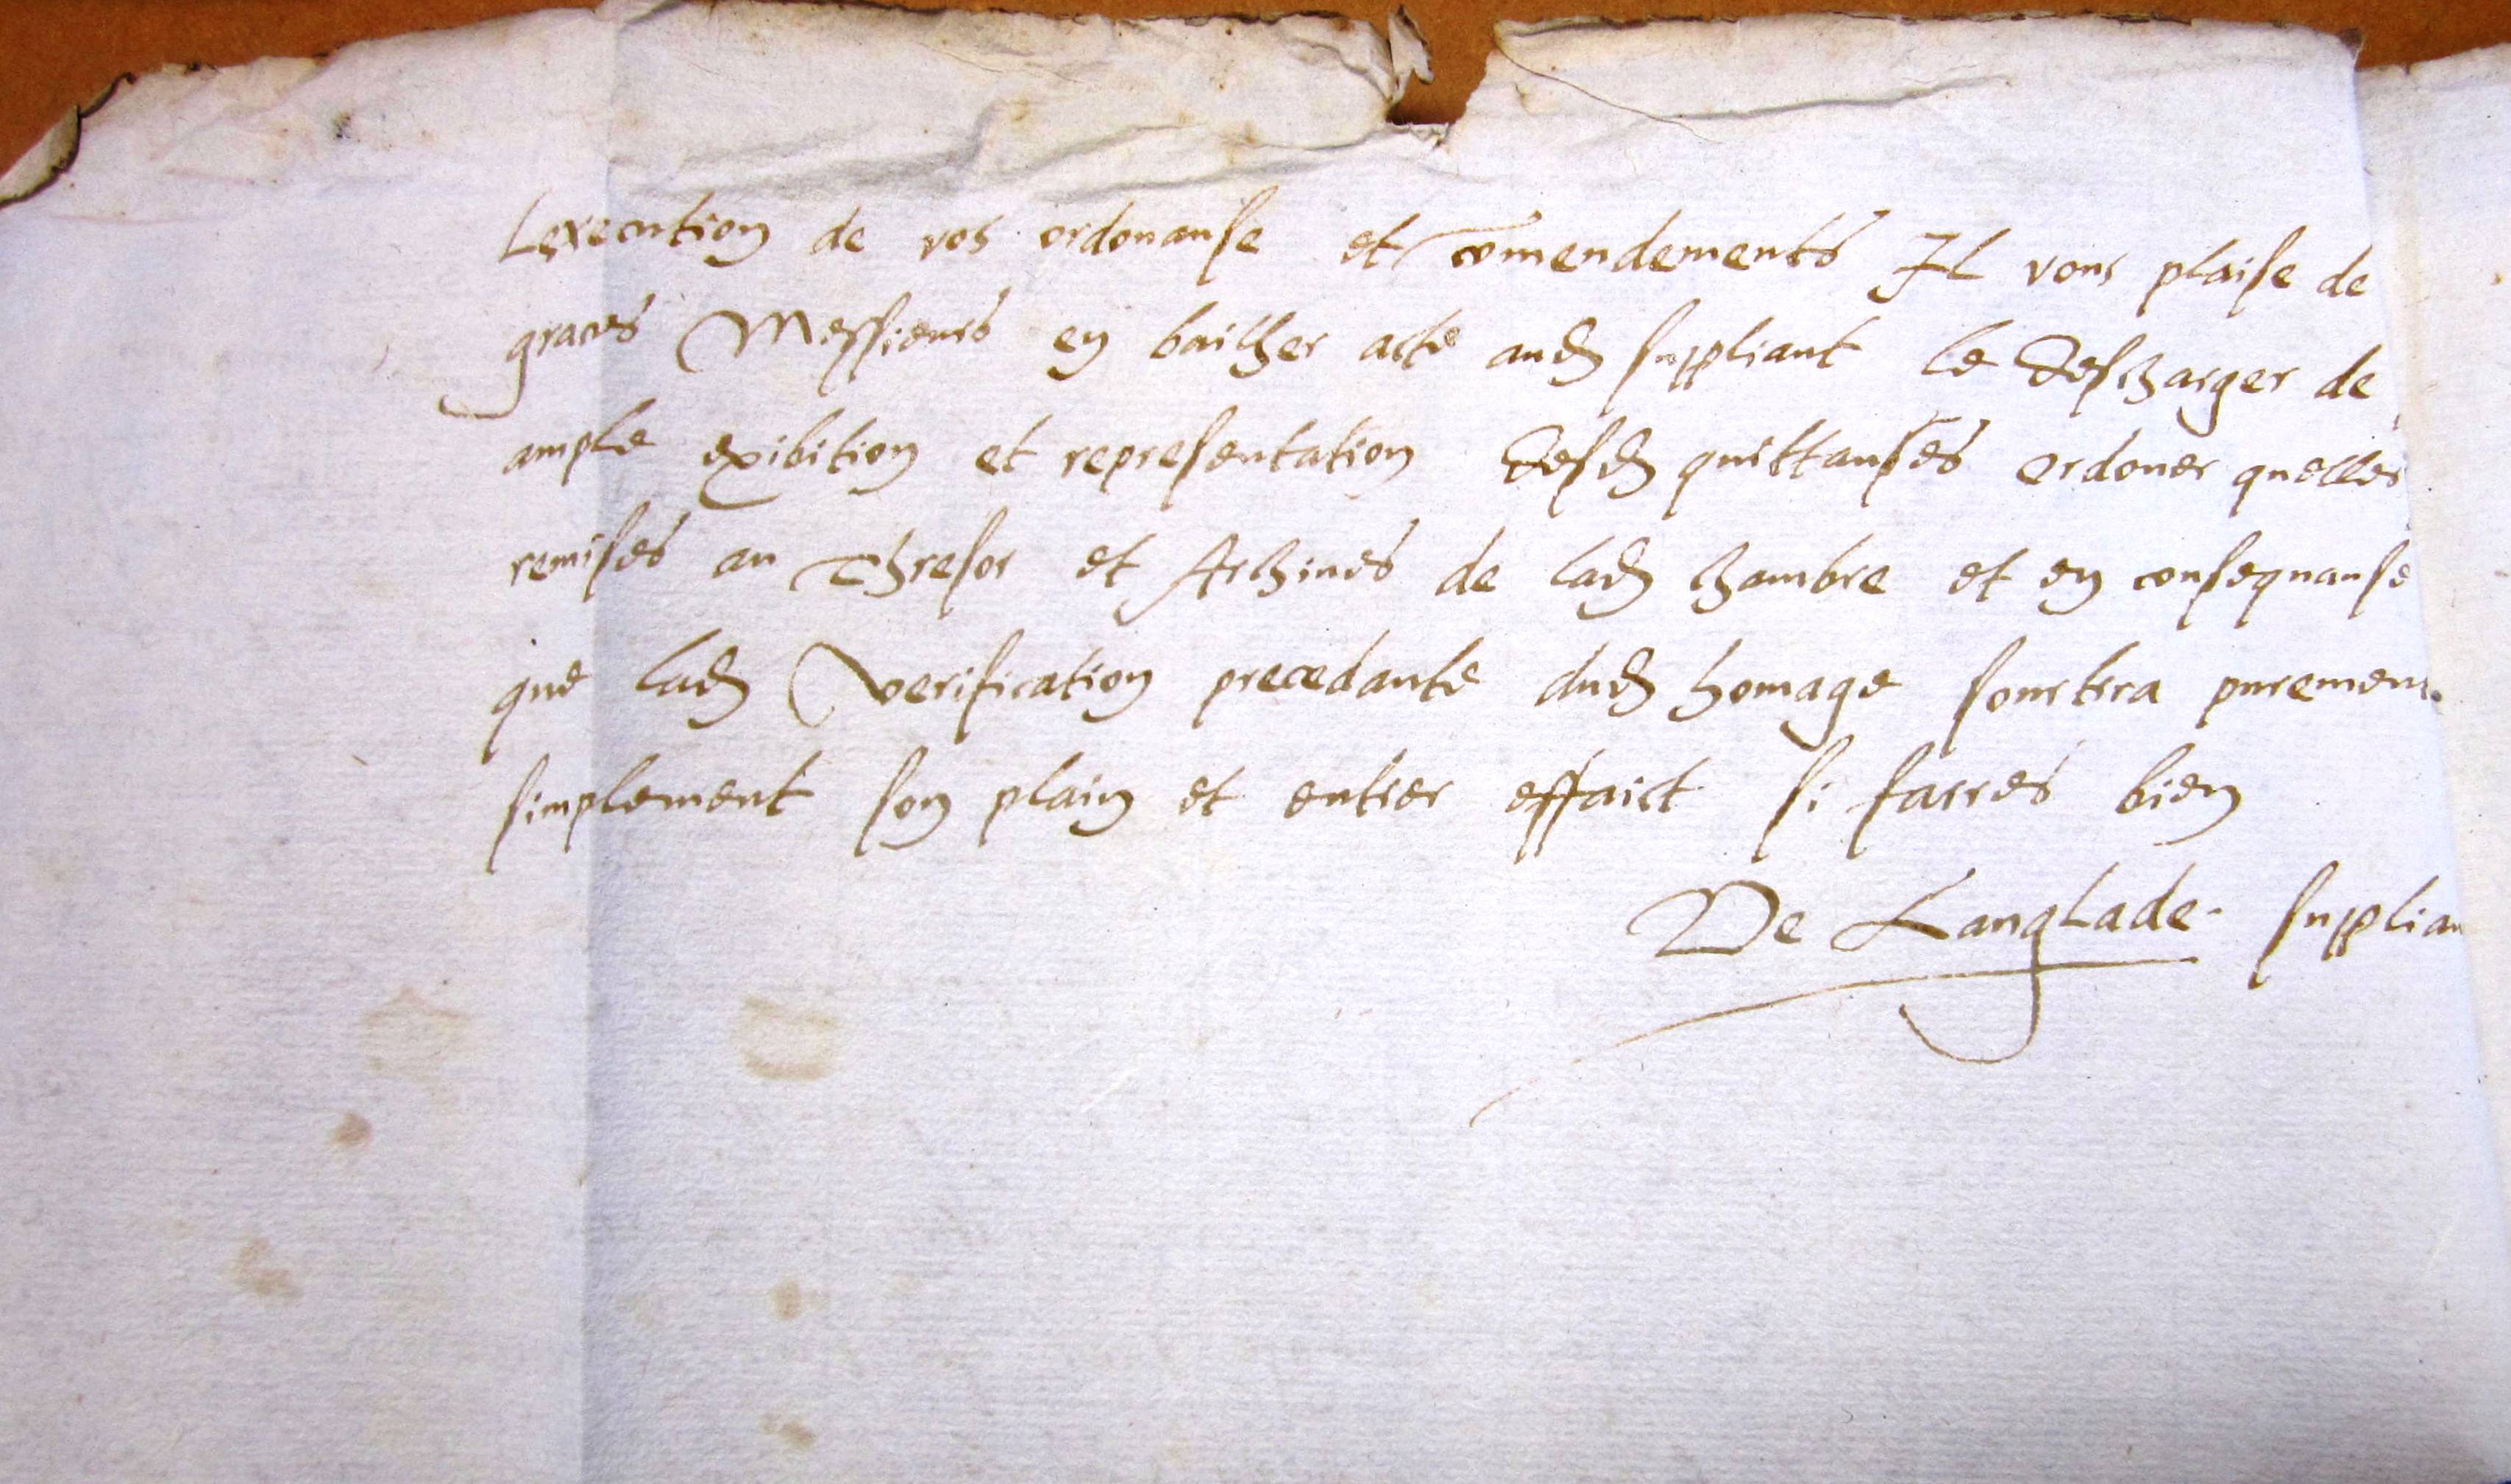 Lexecution de vos ordonanse et comendements Il vous plaise de
graces Messieurs en bailher acte aud suppliant le descharger de
ample exibition et representation desd quittanses ordoner quelles
remises au Thresor et Archives de lad chambre et en consequanse
que lad verification precedante dud homage sourtira purement
simplement son plain et entier effaict si farres bien
De Langlade supplian